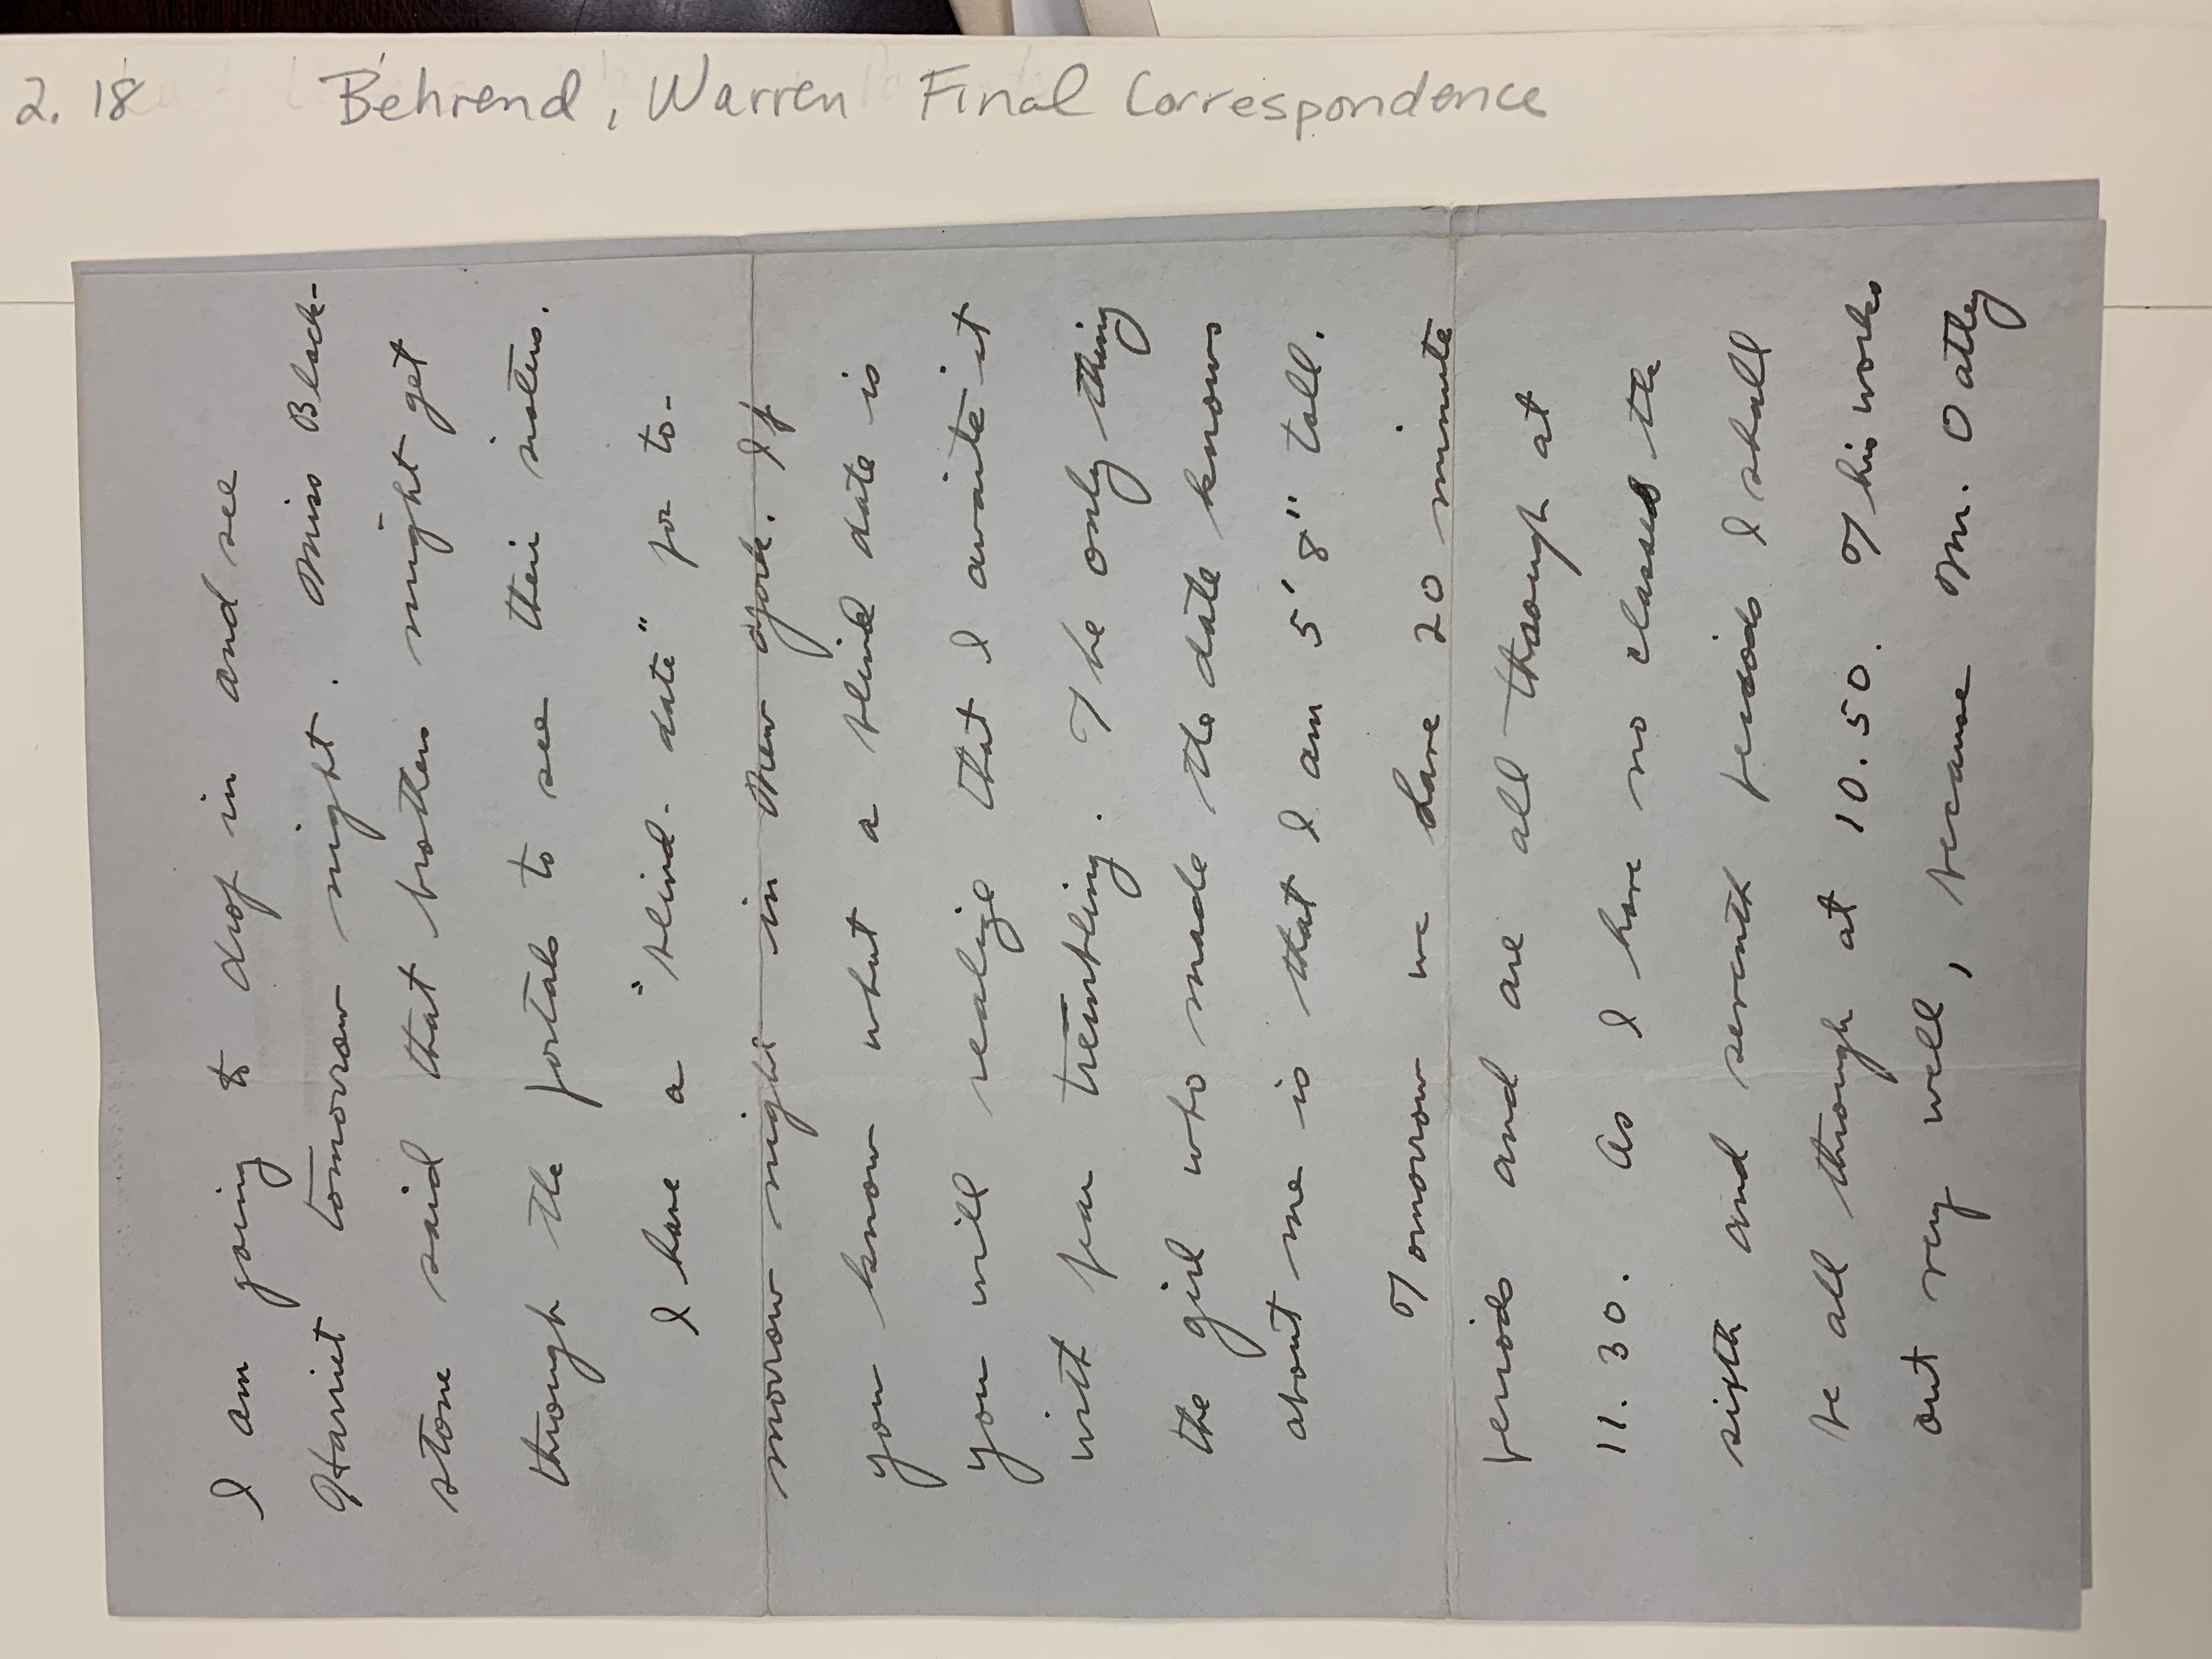 I am going to drop in and see
Harriet tomorrow night. Miss Black-
stone said that brothers might get
through the portals to see their sisters.
I have a "blind-date" for to-
morrow night in New York. If
you know what a blind date is
you will realize that I awaite it
with fear trembling. The only thing
the girl who made the date knows
about me is that I am 5' 8" tall.
Tomorrow we have 20 minute
periods and are all through at
11.30. As I have no classes the
sixth and seventh periods I shall
be all through at 10.50. This works
out very well, because Mr. Oatley
2.18 Behrend, Warren Final Correspondence